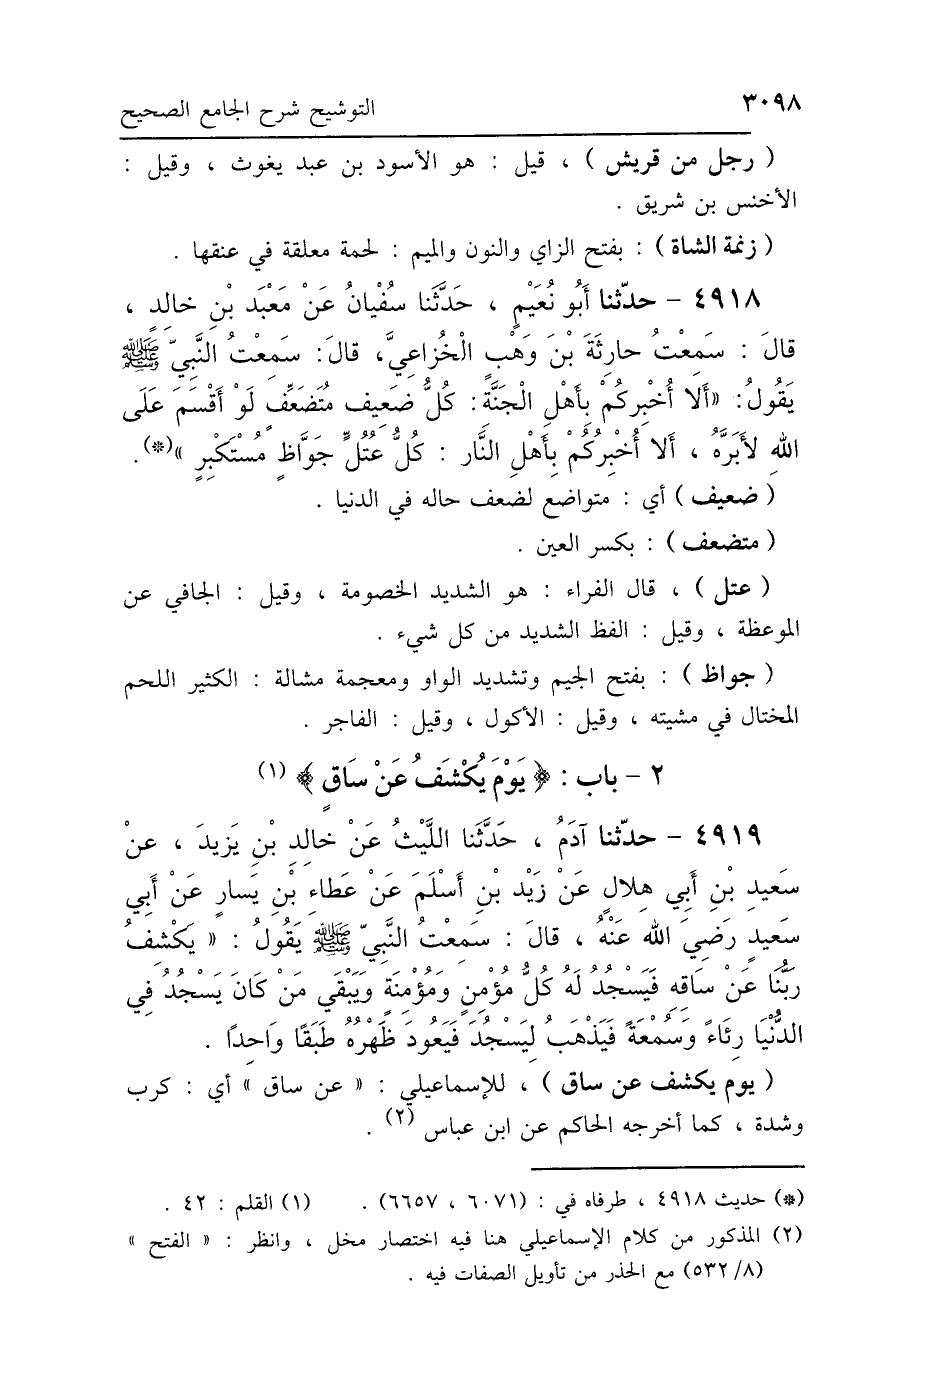 ٣٠٩٨ التوشيح شرح الجامع الصحيح
( رجل من قريش ) ، قيل : هو الأسود بن عبد يغوث ، وقيل :
الأخنس بن شريق .
( زنمة الشاة ) : بفتح الزاي والنون والميم : لحمة معلقة في عنقها .
٤٩١٨ - حدّثنا أَبُو نُعَيْمٍ ، حَدَّثَنا سُفْيانُ عَنْ مَعْبَدِ بْنِ خالِدٍ ،
قالَ : سَمِعْتُ حارِثَةَ بْنَ وَهْبٍ الْخُزاعِيَّ، قالَ: سَمِعْتُ النَّبِيّ ﷺ
يَقُولُ: «أَلا أُخْبِرُكُمْ بِأَهْلِ الْجَنَّةِ: كُلُّ ضَعِيفٍ مُتَضَعِّفٍ لَوْ أَقْسَمَ عَلَى
اللهِ لأَبَرَّهُ ، أَلا أُخْبِرُكُمْ بِأَهْلِ النَّارِ : كُلُّ عُتُلٍّ جَوَّاظٍ مُسْتَكْبِرٍ »(*).
( ضعيف ) أي : متواضع لضعف حاله في الدنيا .
( متضعف ) : بكسر العين .
( عتل ) ، قال الفراء : هو الشديد الخصومة ، وقيل : الجافي عن
الموعظة ، وقيل : الفظ الشديد من كل شيء .
( جواظ ) : بفتح الجيم وتشديد الواو ومعجمة مشالة : الكثير اللحم
المختال في مشيته ، وقيل : الأكول ، وقيل : الفاجر .
٢ - باب : ﴿ يَوْمَ يُكْشَفُ عَنْ سَاقٍ ﴾ (١)
٤٩١٩ - حدّثنا آدَمُ ، حَدَّثَنا اللَّيْثُ عَنْ خالِدِ بْنِ يَزِيدَ ، عنْ
سَعِيدِ بْنِ أَبِي هِلالٍ عَنْ زَيْدِ بْنِ أَسْلَمَ عَنْ عَطاءِ بْنِ يَسارٍ عَنْ أَبِي
سَعِيدٍ رَضِي الله عَنْهُ ، قالَ : سَمِعتُ النَّبِيّ ﷺ يَقُولُ : « يَكْشِفُ
رَبُّنَا عَنْ ساقِهِ فَيَسْجُدُ لَهُ كُلُّ مُؤْمِنٍ وَمُؤْمِنَةٍ وَيَبْقَي مَنْ كَانَ يَسجُدُ فِي
الدُّنْيَا رِئَاءً وَسُمْعَةً فَيَذْهَبُ لِيَسْجُدَ فَيَعُودَ ظَهْرُهُ طَبَقًا وَاحِدًا .
( يوم يكشف عن ساق ) ، للإسماعيلي : « عن ساق » أي : كرب
وشدة ، كما أخرجه الحاكم عن ابن عباس (٢) .
(*) حديث ٤٩١٨ ، طرفاه في : (٦٠٧١ ، ٦٦٥٧) . (١) القلم : ٤٢ .
(٢) المذكور من كلام الإسماعيلي هنا فيه اختصار مخل ، وانظر : « الفتح »
(٨/ ٥٣٢) مع الحذر من تأويل الصفات فيه .